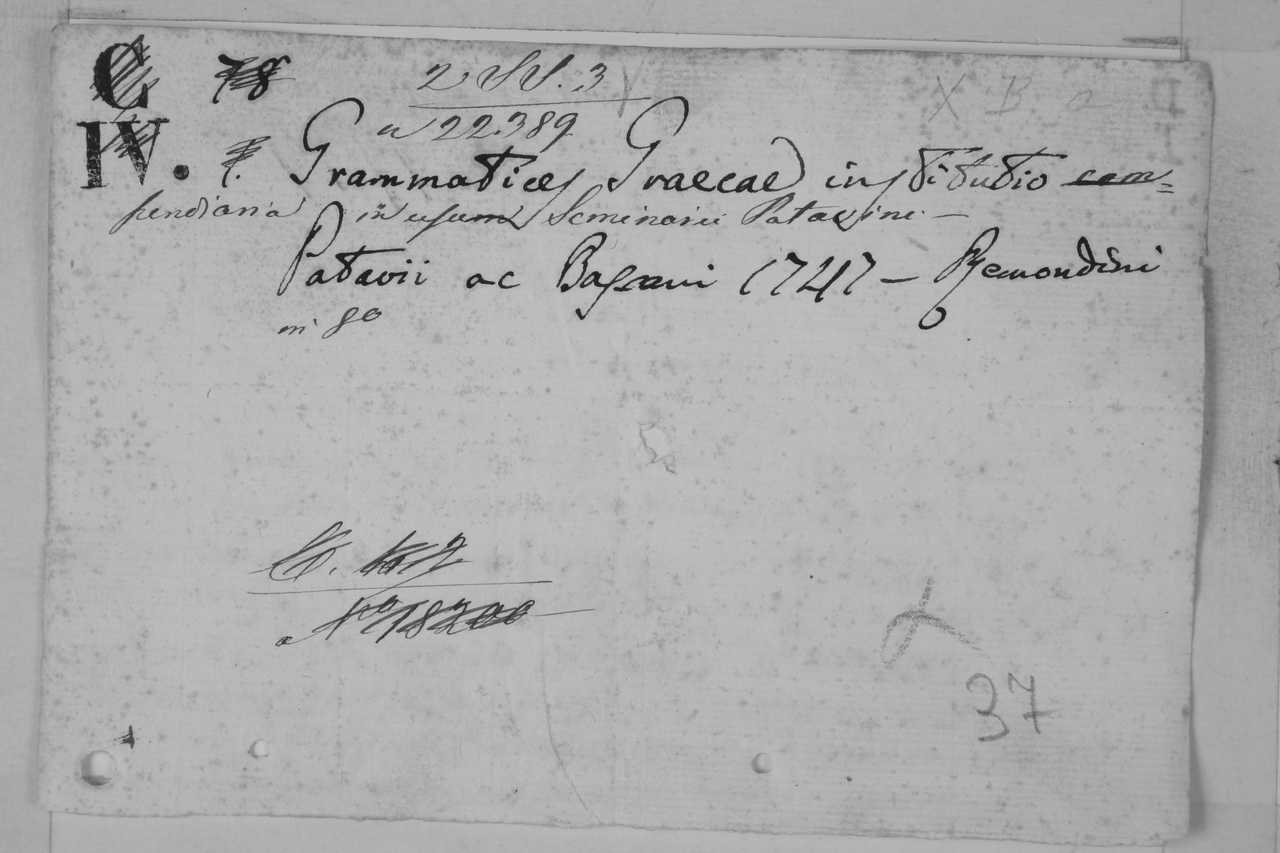 C 78
2 SS. 3
X B a
IV. 7.
a 22389
Grammatices Graecae institutio com=
pendiaria in usum Seminarii Patavini. —
Patavii ac Bassani 1747 — Remondini
in 8o
a No 18200
37